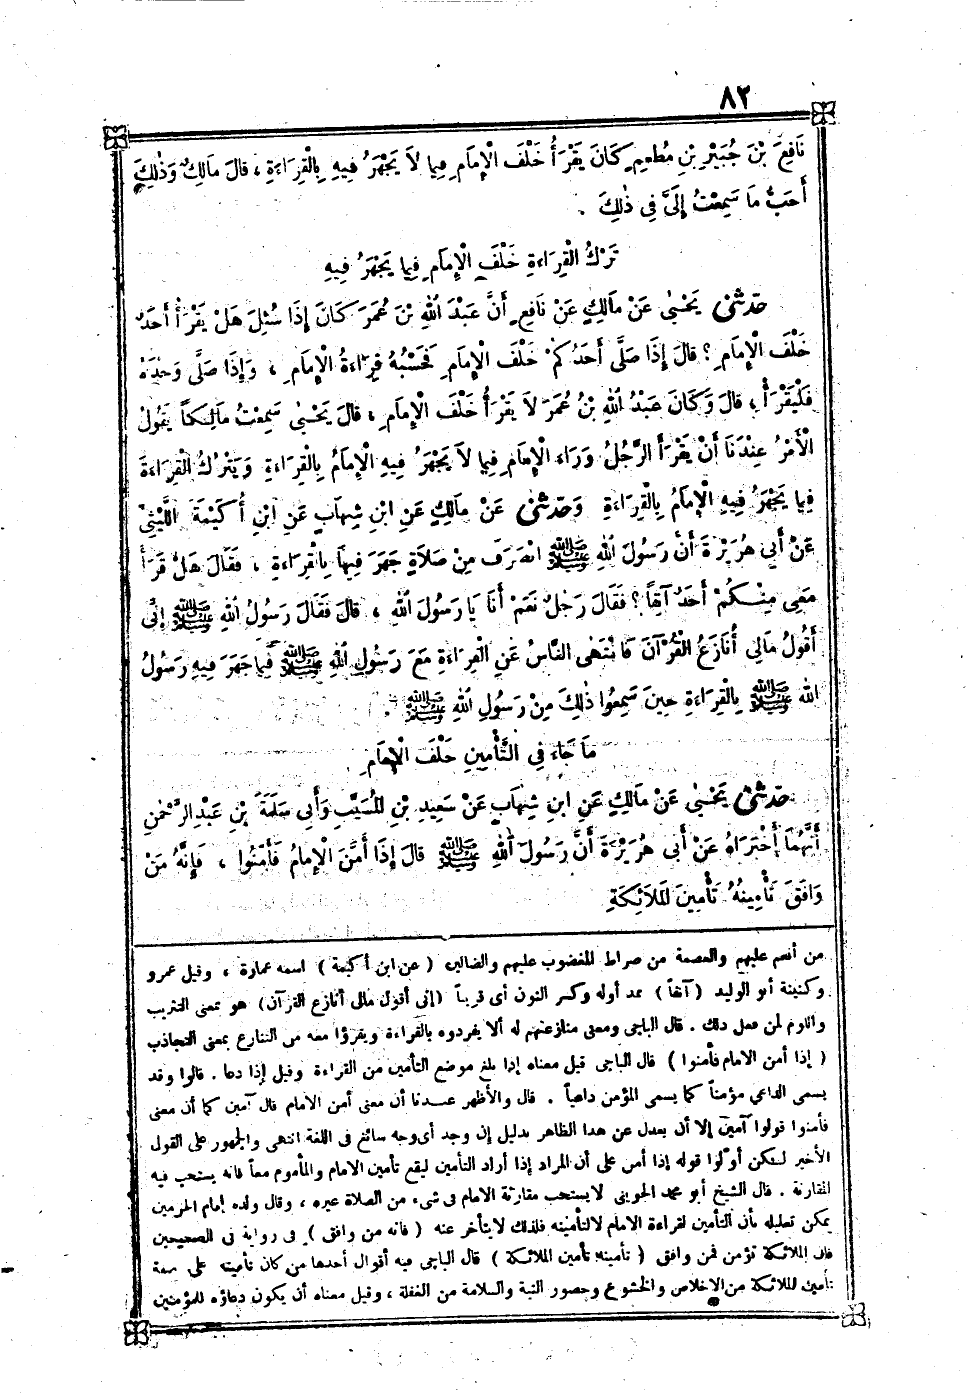 ٨٢
نَافِعَ بْنَ جُبَيْرِ بْنِ مُطْعِمٍ كَانَ يَقْرَأُ خَلْفَ الْإِمَامِ فِيمَا لاَ يَجْهَرُ فِيهِ بِالْقِرَاءَةِ ، قَالَ مَالِكٌ وَذٰلِكَ
أَحَبُّ مَا سَمِعْتُ إِلَىَّ فِي ذٰلِكَ .
تَرْكُ الْقِرَاءَةِ خَلْفَ الْإِمَامِ فِيمَا يَجْهَرُ فِيهِ
حَدَّثَنِي يَحْيٰى عَنْ مَالِكٍ عَنْ نَافِعٍ أَنَّ عَبْدَ اللهِ بْنَ عُمَرَ كَانَ إِذَا سُئِلَ هَلْ يَقْرَأُ أَحَدٌ
خَلْفَ الْإِمَامِ ؟ قَالَ إِذَا صَلَّى أَحَدُكُمْ خَلْفَ الْإِمَامِ فَحَسْبُهُ قِرَاءَةُ الْإِمَامِ ، وَإِذَا صَلَّى وَحْدَهُ
فَلْيَقْرَأْ ، قَالَ وَكَانَ عَبْدُ اللهِ بْنُ عُمَرَ لاَ يَقْرَأُ خَلْفَ الْإِمَامِ ، قَالَ يَحْيٰى سَمِعْتُ مَالِكاً يَقُولُ
الْأَمْرُ عِنْدَنَا أَنْ يَقْرَأَ الرَّجُلُ وَرَاءَ الْإِمَامِ فِيمَا لاَ يَجْهَرُ فِيهِ الْإِمَامُ بِالْقِرَاءَةِ وَيَتْرُكُ الْقِرَاءَةَ
فِيمَا يَجْهَرُ فِيهِ الْإِمَامُ بِالْقِرَاءَةِ وَحَدَّثَنِي عَنْ مَالِكٍ عَنِ ابْنِ شِهَابٍ عَنِ ابْنِ أُكَيْمَةَ اللَّيْثِيِّ
عَنْ أَبِي هُرَيْرَةَ أَنَّ رَسُولَ اللهِ ﷺ انْصَرَفَ مِنْ صَلاَةٍ جَهَرَ فِيهَا بِالْقِرَاءَةِ ، فَقَالَ هَلْ قَرَأَ
مَعِى مِنْكُمْ أَحَدٌ آنِفاً ؟ فَقَالَ رَجُلٌ نَعَمْ أَنَا يَا رَسُولَ اللهِ ، قَالَ فَقَالَ رَسُولُ اللهِ ﷺ إِنِّى
أَقُولُ مَالِى أُنَازَعُ الْقُرْآنَ فَانْتَهَى النَّاسُ عَنِ الْقِرَاءَةِ مَعَ رَسُولِ اللهِ ﷺ فِيمَا جَهَرَ فِيهِ رَسُولُ
اللهِ ﷺ بِالْقِرَاءَةِ حِينَ سَمِعُوا ذٰلِكَ مِنْ رَسُولِ اللهِ ﷺ .
مَا جَاءَ فِى التَّأْمِينِ خَلْفَ الْإِمَامِ
حَدَّثَنِي يَحْيٰى عَنْ مَالِكٍ عَنِ ابْنِ شِهَابٍ عَنْ سَعِيدِ بْنِ الْمُسَيَّبِ وَأَبِى سَلَمَةَ بْنِ عَبْدِ الرَّحْمٰنِ
أَنَّهُمَا أَخْبَرَاهُ عَنْ أَبِى هُرَيْرَةَ أَنَّ رَسُولَ اللهِ ﷺ قَالَ إِذَا أَمَّنَ الْإِمَامُ فَأَمِّنُوا ، فَإِنَّهُ مَنْ
وَافَقَ تَأْمِينُهُ تَأْمِينَ الْمَلاَئِكَةِ
من أنعم عليهم والعصمة من صراط المغضوب عليهم والضالين ( عن ابن أكيمة ) اسمه عمارة ، وقيل عمرو
وكنيته أبو الوليد ( آنفاً ) بمد أوله وكسر النون أى قريباً ( إنى أقول مالى أنازع القرآن ) هو بمعنى التثريب
واللوم لمن فعل ذلك . قال الباجى ومعنى منازعتهم له ألا يفردوه بالقراءة ويقرؤا معه من التنازع بمعنى التجاذب
( إذا أمن الامام فأمنوا ) قال الباجى قيل معناه إذا بلغ موضع التأمين من القراءة وقيل إذا دعا . قالوا وقد
يسمى الداعى مؤمناً كما يسمى المؤمن داعياً . قال والأظهر عندنا أن معنى أمن الامام قال آمين كما أن معنى
فأمنوا قولوا آمين إلا أن يعدل عن هذا الظاهر بدليل إن وجد أى وجه سائغ فى اللغة انتهى والجمهور على القول
الأخير لكن أولوا قوله إذا أمن على أن المراد إذا أراد التأمين ليقع تأمين الامام والمأموم معاً فانه يستحب فيه
المقارنة . قال الشيخ أبو محمد الجوينى لا يستحب مقارنة الامام فى شىء من الصلاة غيره ، وقال ولده إمام الحرمين
يمكن تعليله بأن التأمين لقراءة الامام لا لتأمينه فلذلك لا يتأخر عنه ( فانه من وافق ) فى رواية فى الصحيحين
فان الملائكة تؤمن فمن وافق ( تأمينه تأمين الملائكة ) قال الباجى فيه أقوال أحدها من كان تأمينه على صفة
تأمين الملائكة من الاخلاص والخشوع وحضور النية والسلامة من الغفلة ، وقيل معناه أن يكون دعاؤه للمؤمنين